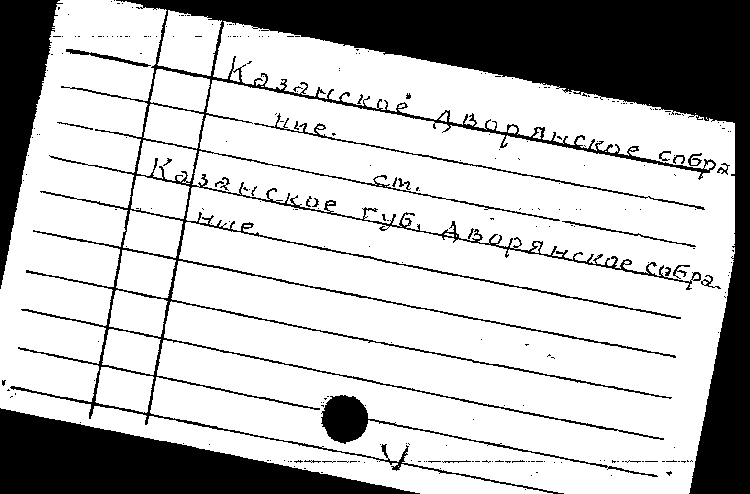 Казанское дворянское собра-
ние.
см.
Казанское губ. дворянское собра-
ние.
V